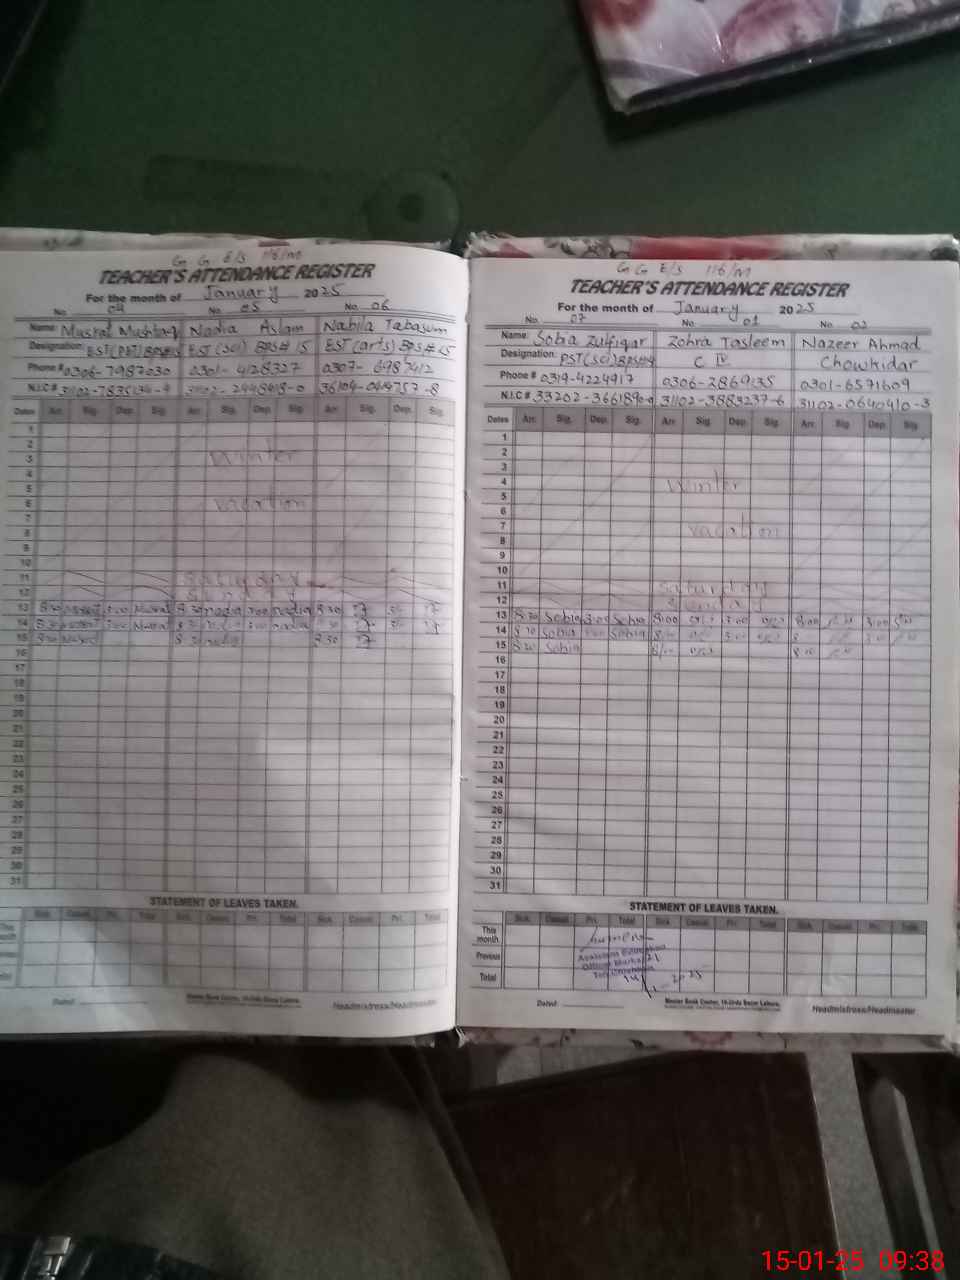 G G E/S 116/M
TEACHER'S ATTENDANCE REGISTER
For the month of January 2025
No. 04 No. 05 No. 06
Name: Musrat Mushtaq Nadia Aslam Nabila Tabasum
Designation: EST(PET) BPS#15 EST(sci) BPS#15 EST(arts) BPS#15
Phone # 0306-7987030 0301-4128327 0307-6987412
N.I.C # 31102-2448418-0
Dates Arr. Sig. Dep. Sig. Arr. Sig. Dep. Sig. Arr. Sig. Dep. Sig.
1
2
3 Winter
4
5
6 vacation
7
8
9
10
11 Saturday
12 Sunday
13 8:30 Musrat 3:00 Musrat 8:30 nadia 3:00 nadia 8:30
14 8:30 Musrat 3:00 Musrat 8:30 nadia 3:00 nadia 8:30
15 8:30 Musrat 8:30 nadia 8:30
16
17
18
19
20
21
22
23
24
25
26
27
28
29
30
31
STATEMENT OF LEAVES TAKEN.
Sick. Casual. Pri. Total Sick. Casual. Pri. Total Sick. Casual. Pri. Total
This month
Previous
Total
Dated: Master Book Center, 19-Urdu Bazar Lahore. Headmistress/Headmaster
G G E/S 116/M
TEACHER'S ATTENDANCE REGISTER
For the month of January 2025
No. 07 No. 01 No. 02
Name: Sobia Zulfiqar Zohra Tasleem Nazeer Ahmad
Designation: PST(Sci) BPS#14 C IV Chowkidar
Phone # 0319-4224917 0306-2869135 0301-6571609
N.I.C # 31102-3883237-6 31102-0640410-3
Dates Arr. Sig. Dep. Sig. Arr. Sig. Dep. Sig. Arr. Sig. Dep. Sig.
1
2
3
4 Winter
5
6
7 vacation
8
9
10
11 Saturday
12 Sunday
13 8:30 Sobia 3:00 Sobia 8:00 3:00 8:00 3:00
14 8:30 Sobia 3:00 Sobia 8:00 3:00 8 3:00
15 8:30 Sobia 8:00 8:00
16
17
18
19
20
21
22
23
24
25
26
27
28
29
30
31
STATEMENT OF LEAVES TAKEN.
Sick. Casual. Pri. Total Sick. Casual. Pri. Total
This month
Previous
Total
Assistant Education
Officer Markaz 21
2025
Dated: Master Book Center, 19-Urdu Bazar Lahore. Headmistress/Headmaster
15-01-25 09:38